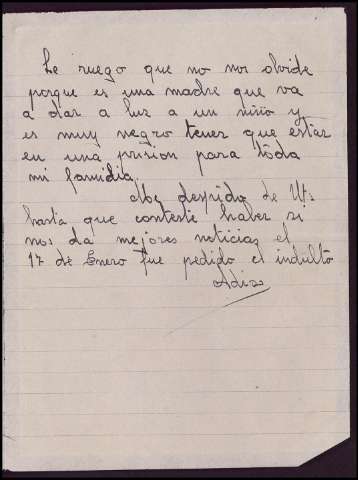 Le ruego que no nos olvide
porque es una madre que va
a dar a luz a un niño y
es muy negro tener que estar
en una prision para tôda
mi familia.
Me despido de Uts
hasta que conteste haber si
nos da mejores noticias el
17 de Enero fue pedido el indulto
Adios